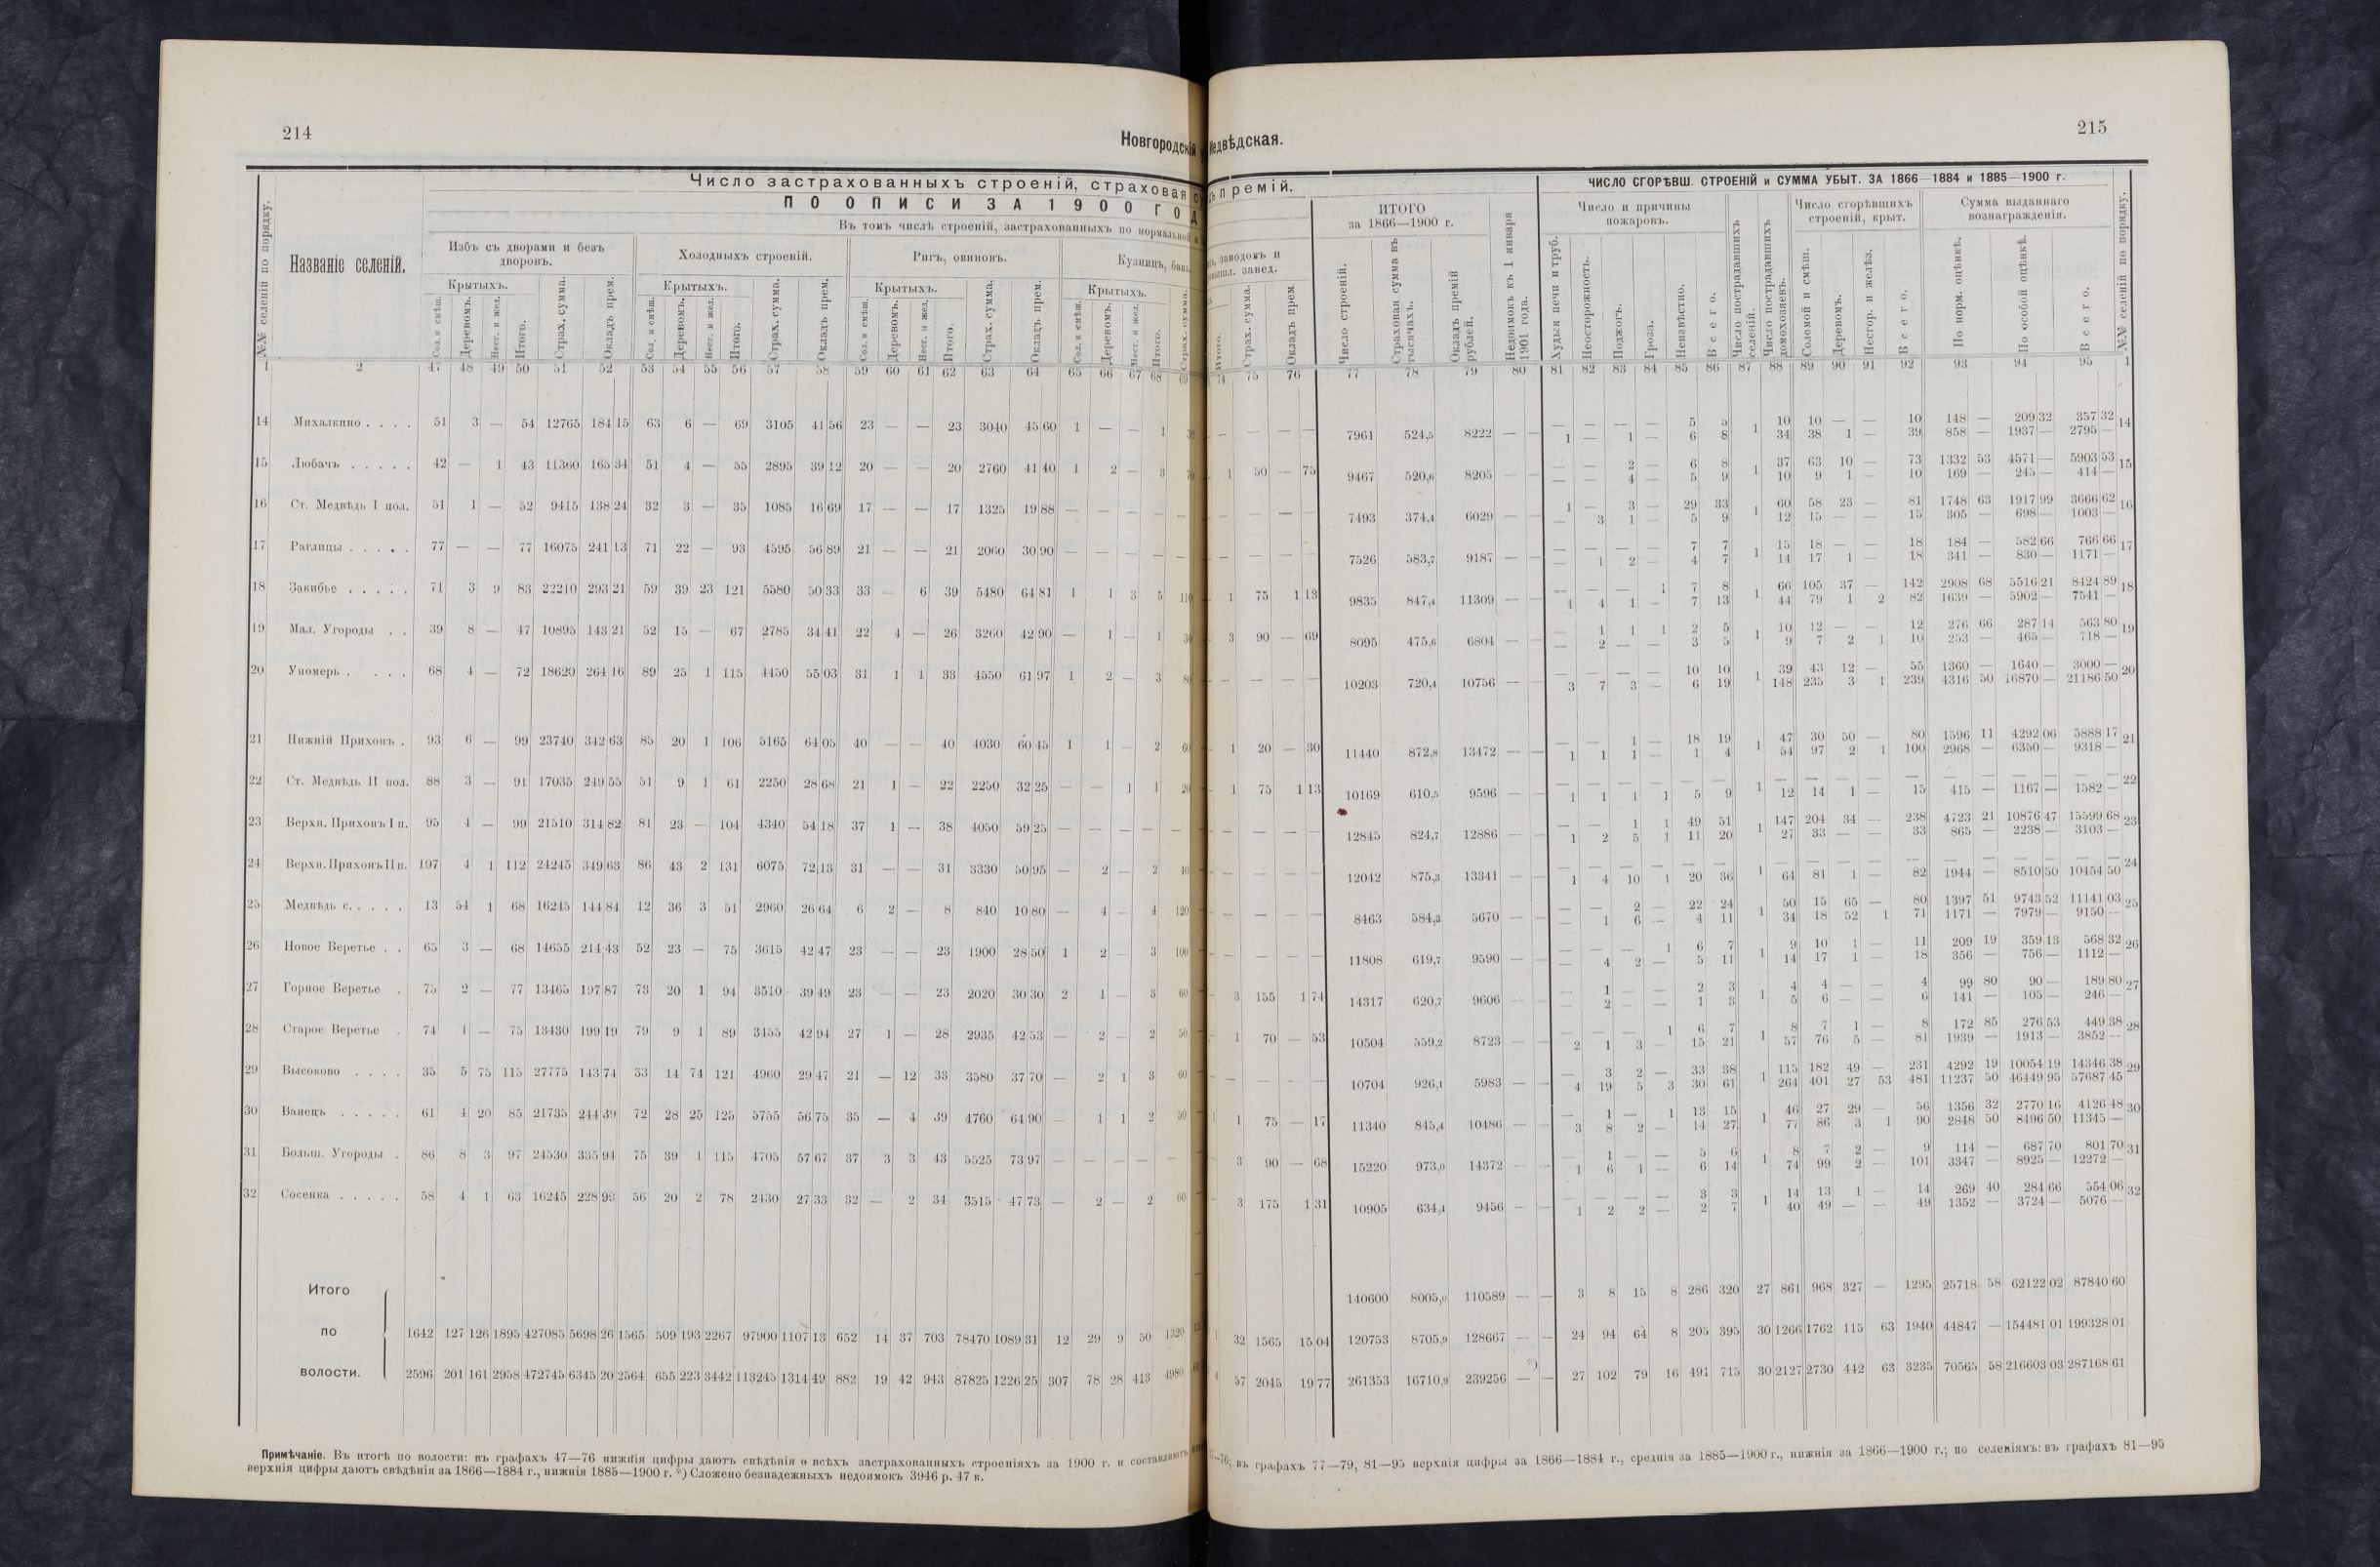 214
Новгородскій
Число застрахованныхъ строеній, страховая
ПО ОПИСИ ЗА 1900 ГОД
Въ томъ числѣ строеній, застрахованныхъ по нормальной
№№ селеній по порядку.
Названіе селеній.
Избъ съ дворами и безъ дворовъ.
Холодныхъ строеній.
Ригъ, овиновъ.
Кузницъ, бань
Крытыхъ. Крытыхъ. Крытыхъ. Крытыхъ.
Сол. и смѣш. Деревомъ. Несг. и жел. Итого. Страх. сумма. Окладъ прем.
Сол. и смѣш. Деревомъ. Несг. и жел. Итого. Страх. сумма. Окладъ прем.
Сол. и смѣш. Деревомъ. Несг. и жел. Итого. Страх. сумма. Окладъ прем.
Сол. и смѣш. Деревомъ. Несг. и жел. Итого. Страх. сумма.
1 2 47 48 49 50 51 52 53 54 55 56 57 58 59 60 61 62 63 64 65 66 67 68 69
14 Михалкино . . . . 51 3 — 54 12765 184 15 63 6 — 69 3105 41 56 23 — — 23 3040 45 60 1 — — 1
15 Любачъ . . . . . 42 — 1 43 11360 165 34 51 4 — 55 2895 39 12 20 — — 20 2760 41 40 1 2 — 3 70
16 Ст. Медвѣдь I пол. 51 1 — 52 9415 138 24 32 3 — 35 1085 16 69 17 — — 17 1325 19 88 — — — — —
17 Раглицы . . . . . 77 — — 77 16075 241 13 71 22 — 93 4595 56 89 21 — — 21 2060 30 90 — — — — —
18 Закибье . . . . . 71 3 9 83 22210 293 21 59 39 23 121 5580 50 33 33 — 6 39 5480 64 81 1 1 3 5 110
19 Мал. Угороды . . 39 8 — 47 10895 143 21 52 15 — 67 2785 34 41 22 4 — 26 3260 42 90 — 1 — 1 30
20 Уномерь . . . . 68 4 — 72 18620 264 16 89 25 1 115 4450 55 03 31 1 1 33 4550 61 97 1 2 — 3 80
21 Нижній Прихонъ . 93 6 — 99 23740 342 63 85 20 1 106 5165 64 05 40 — — 40 4030 60 45 1 1 — 2 60
22 Ст. Медвѣдь II пол. 88 3 — 91 17035 249 55 51 9 1 61 2250 28 68 21 1 — 22 2250 32 25 — — 1 1 20
23 Верхн. Прихонъ I п. 95 4 — 99 21510 314 82 81 23 — 104 4340 54 18 37 1 — 38 4050 59 25 — — — — —
24 Верхн. Прихонъ II п. 107 4 1 112 24245 349 63 86 43 2 131 6075 72 13 31 — — 31 3330 50 95 — 2 — 2 40
25 Медвѣдь с. . . . . 13 54 1 68 16245 144 84 12 36 3 51 2960 26 64 6 2 — 8 840 10 80 — 4 — 4 120
26 Новое Веретье . . 65 3 — 68 14655 214 43 52 23 — 75 3615 42 47 23 — — 23 1900 28 50 1 2 — 3 100
27 Горное Веретье . 75 2 — 77 13465 197 87 73 20 1 94 3510 39 49 23 — — 23 2020 30 30 2 1 — 3 60
28 Старое Веретье . 74 1 — 75 13430 199 19 79 9 1 89 3455 42 94 27 1 — 28 2935 42 53 — 2 — 2 50
29 Высоково . . . . 35 5 75 115 27775 143 74 33 14 74 121 4960 29 47 21 — 12 33 3580 37 70 — 2 1 3 60
30 Ванецъ . . . . . 61 4 20 85 21735 244 39 72 28 25 125 5755 56 75 35 — 4 39 4760 64 90 — 1 1 2 50
31 Больш. Угороды . 86 8 3 97 24530 335 94 75 39 1 115 4705 57 67 37 3 3 43 5525 73 97 — — — — —
32 Сосенка . . . . . 58 4 1 63 16245 228 99 56 20 2 78 2430 27 33 32 — 2 34 3515 47 73 — 2 — 2 60
Итого
по
волости.
1642 127 126 1895 427085 5698 26 1565 509 193 2267 97900 1107 13 652 14 37 703 78470 1089 31 12 29 9 50 1320
2596 201 161 2958 472745 6345 20 2564 655 223 3442 113245 1314 49 882 19 42 943 87825 1226 25 307 78 28 413 4980
Примѣчаніе. Въ итогѣ по волости: въ графахъ 47—76 нижнія цифры даютъ свѣдѣнія о всѣхъ застрахованныхъ строеніяхъ за 1900 г. и составляютъ
верхнія цифры даютъ свѣдѣнія за 1866—1884 г., нижнія 1885—1900 г. *) Сложено безнадежныхъ недоимокъ 3946 р. 47 к.
215
Медвѣдская.
премій.
ЧИСЛО СГОРѢВШ. СТРОЕНІЙ и СУММА УБЫТ. ЗА 1866—1884 и 1885—1900 г.
заводовъ и
завед.
ИТОГО
за 1866—1900 г.
Недоимокъ къ 1 января 1901 года.
Число и причины пожаровъ.
Число пострадавшихъ селеній.
Число пострадавшихъ домохозяевъ.
Число сгорѣвшихъ строеній, крыт.
Сумма выданнаго вознагражденія.
№№ селеній по порядку.
Итого. Страх. сумма. Окладъ прем
Число строеній. Страховая сумма въ тысячахъ. Окладъ премій рублей.
Худыя печи и труб. Неосторожность. Поджогъ. Гроза. Неизвѣстно. Всего.
Соломой и смѣш. Деревомъ. Несгор. и желѣз. Всего.
По норм. оцѣнкѣ. По особой оцѣнкѣ. Всего.
74 75 76 77 78 79 80 81 82 83 84 85 86 87 88 89 90 91 92 93 94 95 1
— — — — 7961 524,5 8222 — —
— — — — 5 5 1 10 10 — — 10 148 — 209 32 357 32 14
1 — 1 — 6 8 34 38 1 — 39 858 — 1937 — 2795 —
1 50 — 75 9467 520,6 8205 — —
— — 2 — 6 8 1 37 63 10 — 73 1332 53 4571 — 5903 53 15
— — 4 — 5 9 10 9 1 — 10 169 — 245 — 414 —
— — — — 7493 374,4 6029 — —
1 — 3 — 29 33 1 60 58 23 — 81 1748 63 1917 99 3666 62 16
— 3 1 — 5 9 12 15 — — 15 305 — 698 — 1003 —
— — — — 7526 583,7 9187 — —
— — — — 7 7 1 15 18 — — 18 184 — 582 66 766 66 17
— 1 2 — 4 7 14 17 1 — 18 341 — 830 — 1171 —
1 75 1 13 9835 847,4 11309 — —
— — — 1 7 8 1 66 105 37 — 142 2908 68 5516 21 8424 89 18
1 4 1 — 7 13 44 79 1 2 82 1639 — 5902 — 7541 —
3 90 — 69 8095 475,6 6804 — —
— 1 1 1 2 5 1 10 12 — — 12 276 66 287 14 563 80 19
— 2 — — 3 5 9 7 2 1 10 253 — 465 — 718 —
— — — — 10203 720,4 10756 — —
— — — — 10 10 1 39 43 12 — 55 1360 — 1640 — 3000 — 20
3 7 3 — 6 19 148 235 3 1 239 4316 50 16870 — 21186 50
1 20 — 30 11440 872,8 13472 — —
— — 1 — 18 19 1 47 30 50 — 80 1596 11 4292 06 5888 17 21
1 1 1 — 1 4 54 97 2 1 100 2968 — 6350 — 9318 —
1 75 1 13 10169 610,5 9596 — —
— — — — — — 1 — — — — — — — — — 22
1 1 1 1 5 9 12 14 1 — 15 415 — 1167 — 1582 —
— — — — 12845 824,7 12886 — —
— — 1 1 49 51 1 147 204 34 — 238 4723 21 10876 47 15599 68 23
1 2 5 1 11 20 27 33 — — 33 865 — 2238 — 3103 —
— — — — 12042 875,3 13341 — —
— — — — — — 1 — — — — — — — — — 24
1 4 10 1 20 36 64 81 1 — 82 1944 — 8510 50 10454 50
— — — — 8463 584,3 5670 — —
— — 2 — 22 24 1 50 15 65 — 80 1397 51 9743 52 11141 03 25
— 1 6 — 4 11 34 18 52 1 71 1171 — 7979 — 9150 —
— — — — 11808 619,7 9590 — —
— — — 1 6 7 1 9 10 1 — 11 209 19 359 13 568 32 26
— 4 2 — 5 11 14 17 1 — 18 356 — 756 — 1112 —
3 155 1 74 14317 620,7 9606 — —
— 1 — — 2 3 1 4 4 — — 4 99 80 90 — 189 80 27
— 2 — — 1 3 5 6 — — 6 141 — 105 — 246 —
1 70 — 53 10504 559,2 8723 — —
— — — 1 6 7 1 8 7 1 — 8 172 85 276 53 449 38 28
2 1 3 — 15 21 57 76 5 — 81 1939 — 1913 — 3852 —
— — — — 10704 926,1 5983 — —
— 3 2 — 33 38 1 115 182 49 — 231 4292 19 10054 19 14346 38 29
4 19 5 3 30 61 264 401 27 53 481 11237 50 46449 95 57687 45
1 75 — 17 11340 845,4 10486 — —
— 1 — 1 13 15 1 46 27 29 — 56 1356 32 2770 16 4126 48 30
3 8 2 — 14 27 77 86 3 1 90 2848 50 8496 50 11345 —
3 90 — 68 15220 973,0 14372 — —
— 1 — — 5 6 1 8 7 2 — 9 114 — 687 70 801 70 31
1 6 1 — 6 14 74 99 2 — 101 3347 — 8925 — 12272 —
3 175 1 31 10905 634,4 9456 — —
— — — — 3 3 1 14 13 1 — 14 269 40 284 66 554 06 32
1 2 2 — 2 7 40 49 — — 49 1352 — 3724 — 5076 —
140600 8005,0 110589 — — 3 8 15 8 286 320 27 861 968 327 — 1295 25718 58 62122 02 87840 60
32 1565 15 04 120753 8705,9 128667 — — 24 94 64 8 205 395 30 1266 1762 115 63 1940 44847 — 154481 01 199328 01
57 2045 19 77 261353 16710,9 239256 *) — — 27 102 79 16 491 715 30 2127 2730 442 63 3235 70565 58 216603 03 287168 61
—76; въ графахъ 77—79, 81—95 верхнія цифры за 1866—1884 г., среднія за 1885—1900 г., нижнія за 1866—1900 г.; по селеніямъ: въ графахъ 81—95